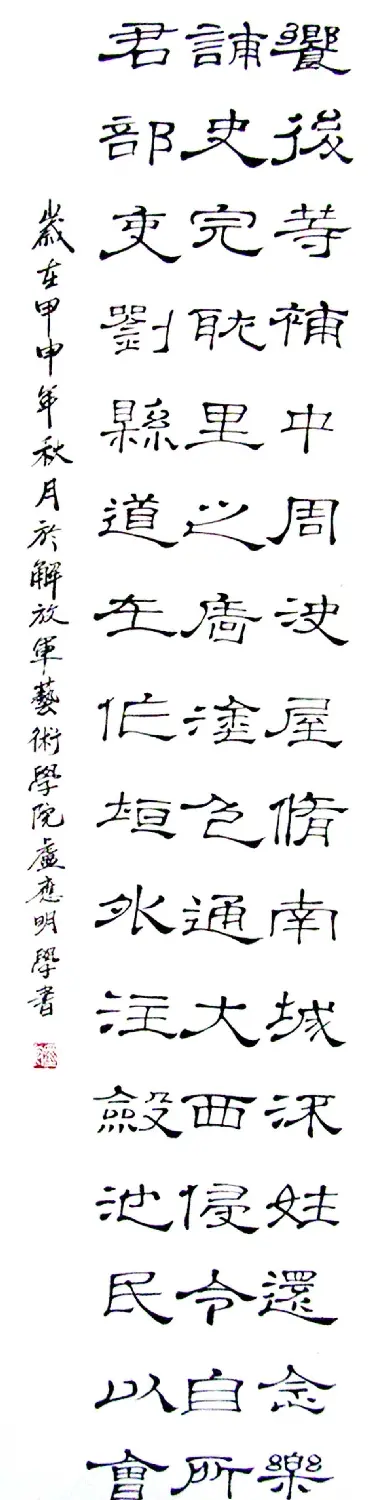 饗後等補中周決屋脩南城姓還念樂
誦史完耽里之廧塗色通大西侵令自所
君部吏劉縣道左作垣外注斂池民以會
歲在甲申年秋月於解放軍藝術學院盧應明學書